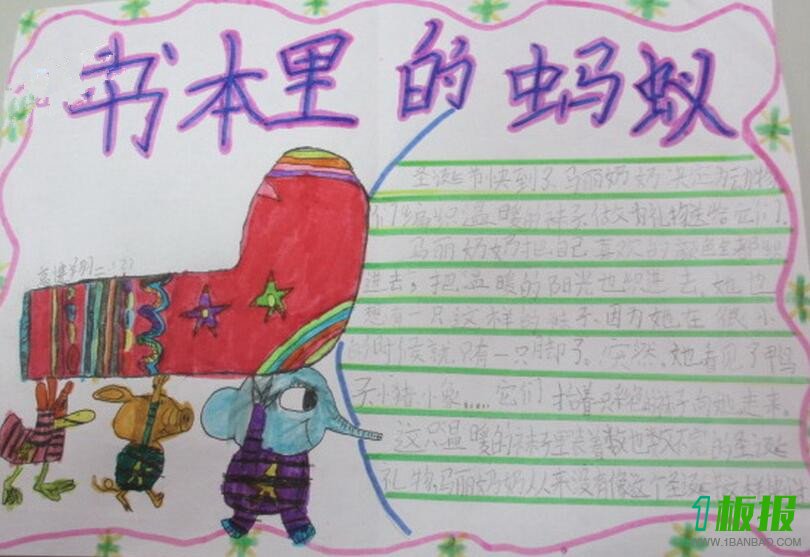 书本里的蚂蚁
圣诞节快到了,马丽奶奶决定为动物
们编织温暖的袜子,做为礼物送给它们。
马丽奶奶把自己喜欢的颜色都织
进去,把温暖的阳光也织进去,她也
想有一只这样的袜子,因为她在很小
的时候就只有一只脚了。突然,她看见了鸭
子小猪小象……它们抬着只彩色的袜子向她走来。
这只温暖的袜子里装着数也数不完的圣诞
礼物,马丽奶奶从来没有像这个圣诞这样
1板报
WWW.1BANBAO.COM